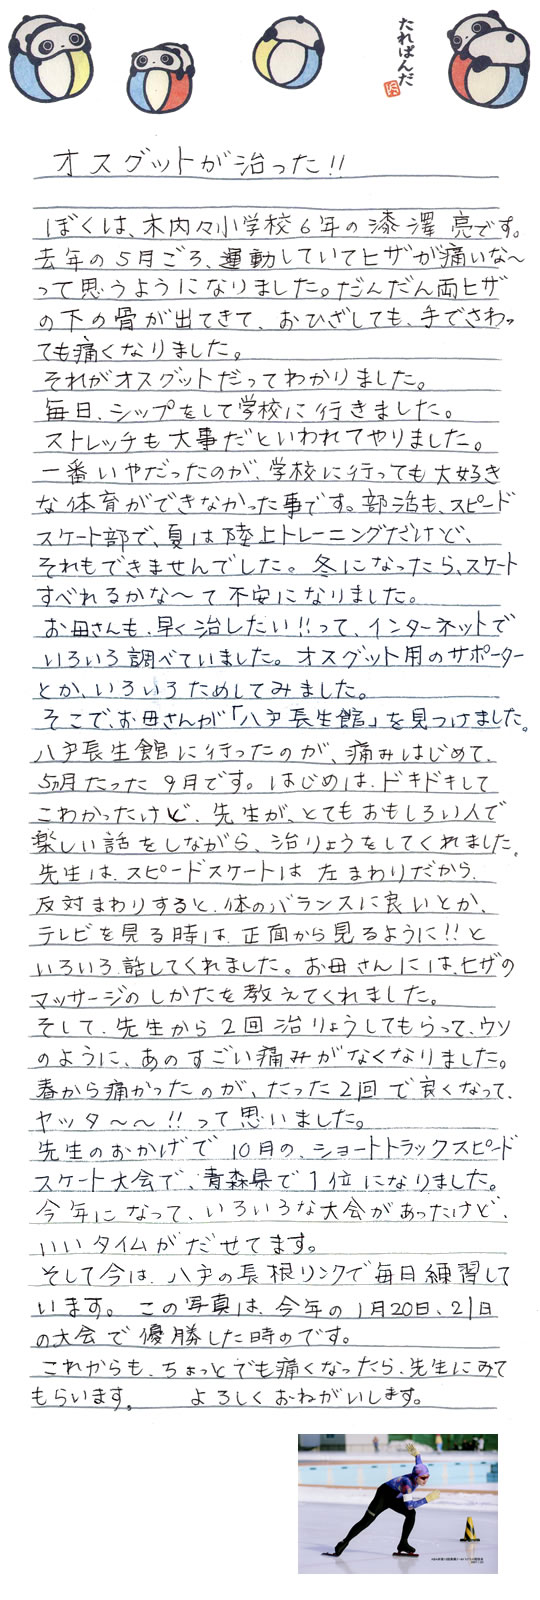 たれぱんだ
オスグットが治った!!
ぼくは、木内々小学校6年の漆澤 亮です。
去年の5月ごろ、運動していてヒザが痛いな〜
って思うようになりました。だんだん両ヒザ
の下の骨が出てきて、おひざしても、手でさわっ
ても痛くなりました。
それがオスグットだってわかりました。
毎日、シップをして学校に行きました。
ストレッチも大事だといわれてやりました。
一番いやだったのが、学校に行っても大好き
な体育ができなかった事です。部活も、スピード
スケート部で、夏は陸上トレーニングだけど、
それもできませんでした。冬になったら、スケート
すべれるかな〜て不安になりました。
お母さんも、早く治したい!!って、インターネットで
いろいろ調べていました。オスグット用のサポーター
とか、いろいろためしてみました。
そこで、お母さんが「八戸長生館」を見つけました。
八戸長生館に行ったのが、痛みはじめて、
5ヵ月たった9月です。はじめは、ドキドキして
こわかったけど、先生が、とてもおもしろい人で
楽しい話をしながら、治りょうをしてくれました。
先生は、スピードスケートは左まわりだから、
反対まわりすると、体のバランスに良いとか、
テレビを見る時は、正面から見るように!!と
いろいろ話してくれました。お母さんには、ヒザの
マッサージのしかたを教えてくれました。
そして、先生から2回治りょうしてもらって、ウソ
のように、あのすごい痛みがなくなりました。
春から痛かったのが、たった2回で良くなって、
ヤッタ〜〜!!って思いました。
先生のおかげで10月の、ショートトラックスピード
スケート大会で、青森県で1位になりました。
今年になって、いろいろな大会があったけど、
いいタイムがだせてます。
そして今は、八戸の長根リンクで毎日練習して
います。この写真は、今年の1月20日、21日
の大会で優勝した時のです。
これからも、ちょっとでも痛くなったら、先生にみて
もらいます。 よろしくおねがいします。